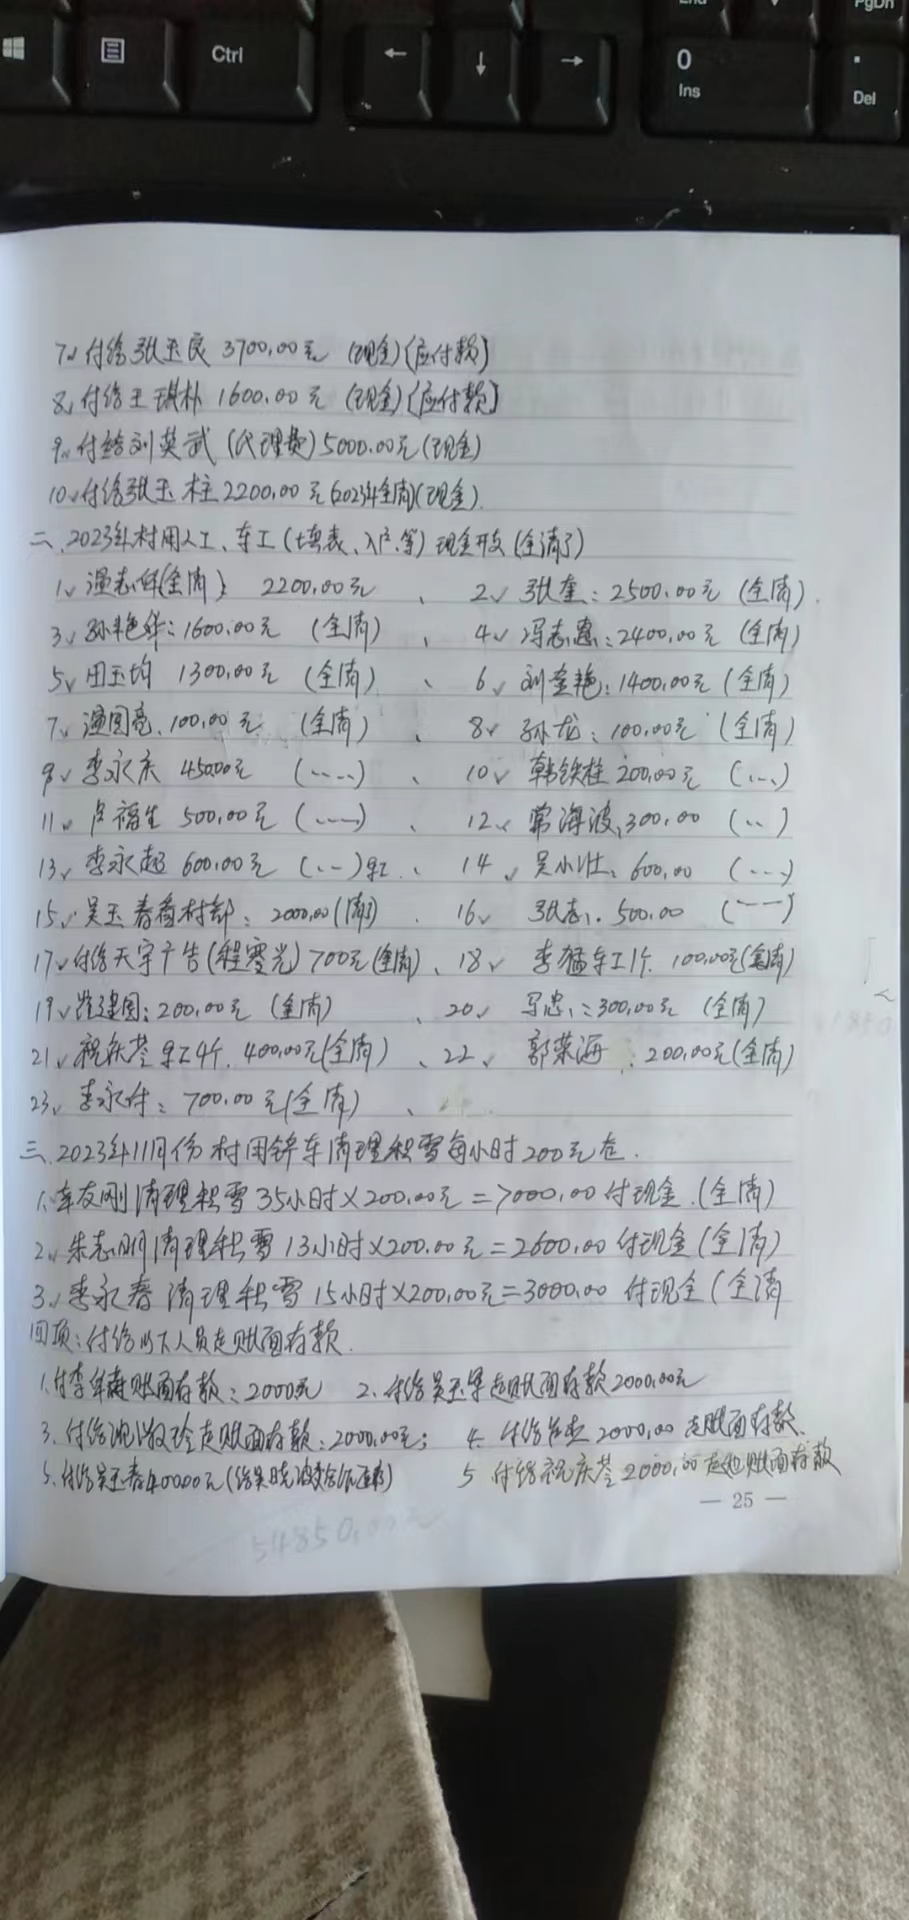 Ctrl
End
PgDn
0
Ins
.
Del
7、付给张玉良 3700.00元 (现金)(应付款)
8、付给王琪朴 1600.00元 (现金)(应付款)
9、付给刘英武(代理费)5000.00元(现金)
10、付给张玉柱2200.00元(2023年全清)(现金)
二、2023年村用人工、车工(填表、入户等)现金开支(全清了)
1、温志伟(全清) 2200.00元 、 2、张奎:2500.00元(全清)
3、孙艳华:1600.00元 (全清) 、 4、冯志惠:2400.00元 (全清)
5、田玉均 1300.00元 (全清) 、 6、刘奎艳:1400.00元(全清)
7、温国亮、100.00元 (全清) 、 8、孙龙:100.00元 (全清)
9、李永东 450.00元 (……) 、 10、韩铁柱 200.00元 (…)
11、卢福生 500.00元 (……) 、 12、常海波、300.00 (‥)
13、李永超 600.00元 (…) 、 14、吴小壮、600.00 (…)
15、吴玉春看村部:2000.00(清了) 16、张志、500.00 (……)
17、付给天宇广告(程雪光)700元(全清)、18、李猛车工1个 100.00元(全清)
19、崔建国:200.00元 (全清) 、20、 300.00元 (全清)
21、祝庆芳 工4个、400.00元(全清) 、22、郭荣海:200.00元(全清)
23、李永付:700.00元(全清) 、
三、2023年11月份村用铲车清理积雪每小时200元在.
1、车友刚清理积雪35小时×200.00元=7000.00付现金.(全清)
2、朱志明清理积雪13小时×200.00元=2600.00付现金(全清)
3、李永春清理积雪15小时×200.00元=3000.00 付现金(全清
四项:付给以下人员走账面存款.
1.付李 账面存款:2000元 2.付给吴玉 走账面存款2000.00元
3.付给 走账面存款:2000.00元; 4.付给 2000.00走账面存款、
5.付给吴玉春4000.00元 5 付给祝庆芳2000.00走 账面存款
— 25 —
54850.00元